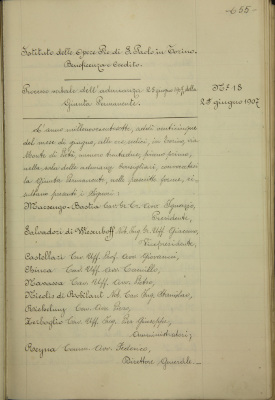 -655-
Istituto delle Opere Pie di S. Paolo in Torino.
Beneficenza e Credito.
Processo verbale dell'adunanza 25 giugno 1907 della
Giunta Permanente.
N.° 18
25 giugno 1907
L'anno millenovecentosette, addì venticinque
del mese di giugno, alle ore sedici, in Torino, via
Monte di Pietà, numero trentadue, piano primo,
nella sala delle adunanze consigliari, convocatasi
la Giunta Permanente, nelle prescritte forme, ri-
sultano presenti i Signori:
Marsengo-Bastia Cav. Gr. Cr. Avv. Ignazio,
Presidente,
Salvadori di Wiesenhoff Nob. Ing. Gr. Uff. Giacomo,
Vicepresidente,
Castellari Cav. Uff. Prof. Avv. Giovanni,
Cav. Uff. Avv. Camillo,
Cav. Uff. Avv. Pietro,
Nicolis di Robilant Nob. Cav. Ing. Stanislao,
Cav. Avv.
Cav. Uff. Ing. Pier Giuseppe,
Amministratori;
Comm. Avv. Federico,
Direttore Generale.